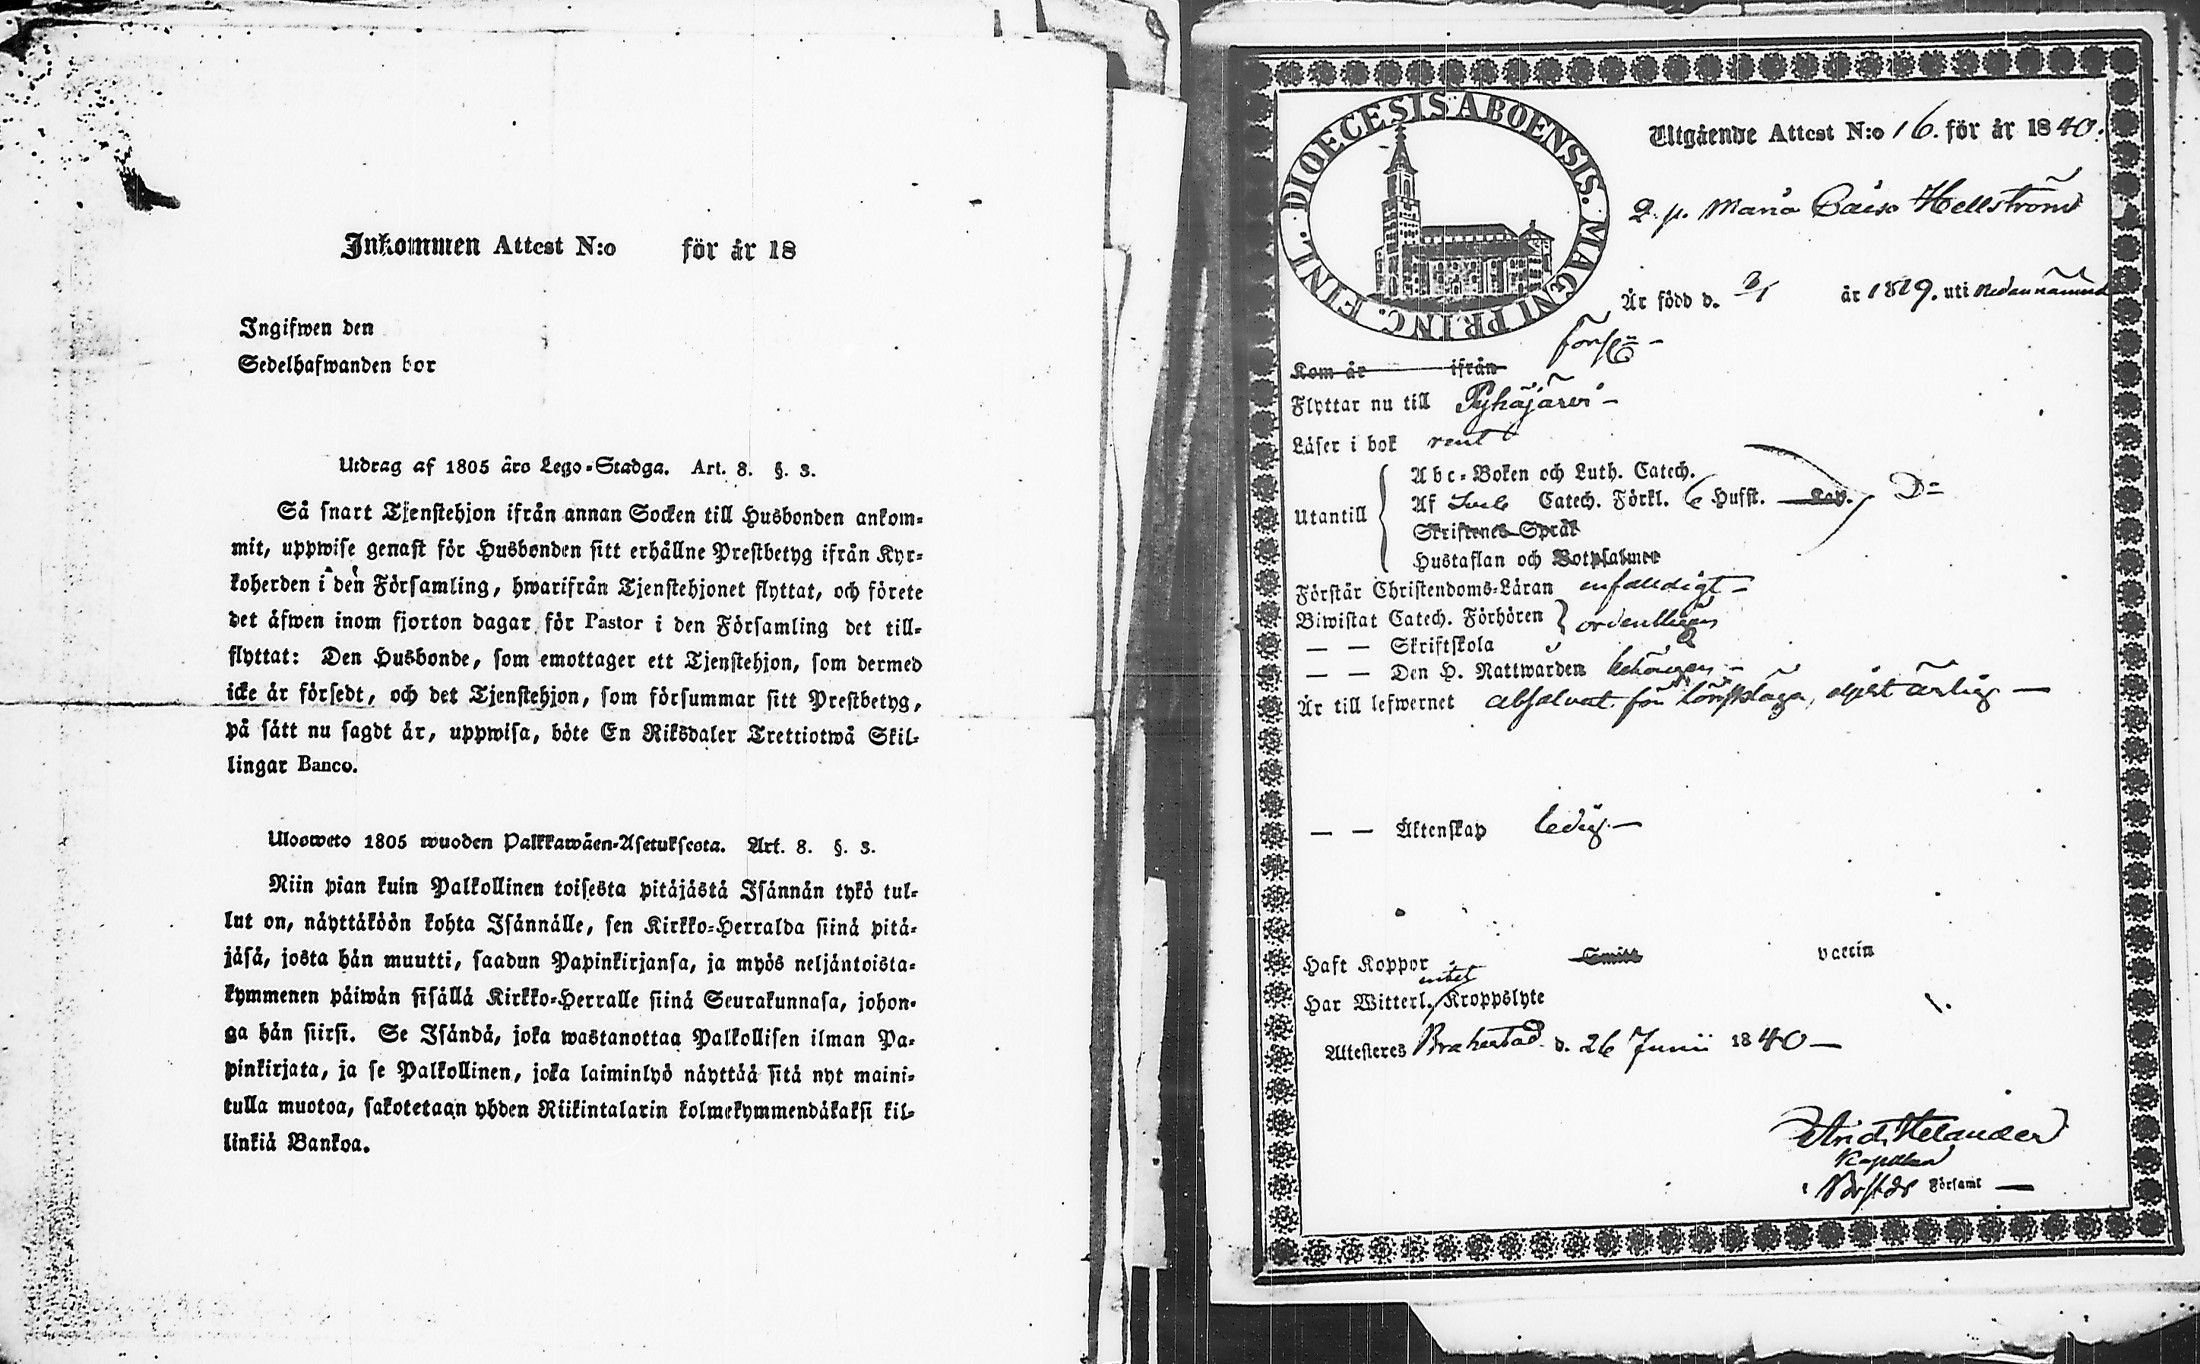 Inkommen Attest N:o för år 18
Ingifwen den
Sedelhafwanden bor
Utdrag af 1805 års Lego-Stadga. Art. 8. §. 3.
Så snart Tjenstehjon ifrån annan Socken till Husbonden ankom-
mit, uppwise genast för Husbonden sitt erhållne Prestbetyg ifrån Kyr-
koherden i den Församling, hwarifrån Tjenstehjonet flyttat, och förete
det äfwen inom fjorton dagar för Pastor i den Församling det till-
flyttat: Den Husbonde, som emottager ett Tjenstehjon, som dermed
icke är försedt, och det Tjenstehjon, som försummar sitt Prestbetyg,
på sätt nu sagdt är, uppwisa, böte En Riksdaler Trettiotwå Skil-
lingar Banco.
Ulosweto 1805 wuoden Palkkawäen-Asetuksesta. Art. 8. §. 3.
Niin pian kuin Palkollinen toisesta pitäjästä Isännän tykö tul-
lut on, näyttäköön kohta Isännälle, sen Kirkko-Herralda siinä pitä-
jäsä, josta hän muutti, saadun Papinkirjansa, ja myös neljäntoista-
kymmenen päiwän sisällä Kirkko-Herralle siinä Seurakunnasa, johon-
ga hän siirsi. Se Isändä, joka wastanottaa Palkollisen ilman Pa-
pinkirjata, ja se Palkollinen, joka laiminlyö näyttää sitä nyt maini-
tulla muotoa, sakotetaan yhden Riikintalarin kolmekymmendäkaksi kil-
linkiä Bankoa.
DIOECESIS ABOENSIS. MAGNI PRINC. FINL.
Utgående Attest N:o 16. för år 1840.
Q. p. Maria Caisa Hellström
Är född d. 3/1 år 1819. uti nedannämnde
förs:
Kom år ifrån
Flyttar nu till Pyhäjärvi –
Läser i bok rent
Abc-Boken och Luth. Catech.
Utantill Af Catech. Förkl. 6 Husst. Kap. D=
Skriftenes Språk
Hustaflan och Botpsalmer
Förstår Christendoms-Läran enfaldigt –
Biwistat Catech. Förhören ordentligen
— — Skriftskola
— — Den H. Nattwarden behörigen –
Är till lefwernet absolverat för lönskläge, eljest ärlig —
— — Äktenskap ledig. —
Haft Koppor Smitt vaccin
Har Witterl. intet Kroppslyte
Attesteres Brahestad d. 26 Junii 1840 —
Helander
Kapellan
i Församl —